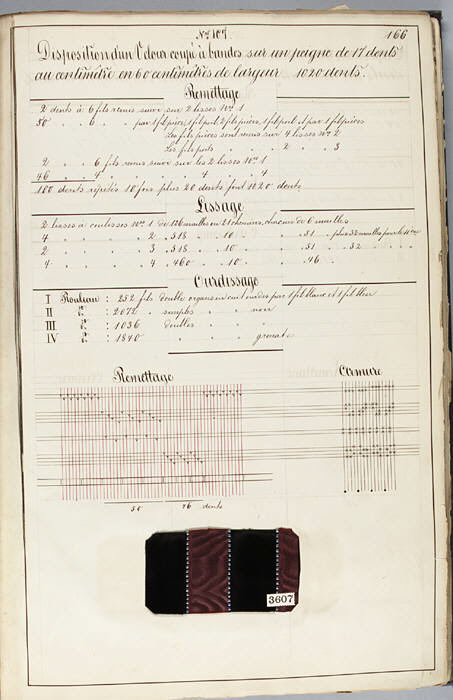 Nro 107. 166
Disposition d'un Velours coupé à bandes sur un peigne de 17 dents
au centimètre en 60 centimètres de largeur 1020 dents.
Remettage
2 dents à 6 fils remis suivi sur 2 lisses Nro 1
50 . . 6 . . par 1 fil pièce, 1 fil poil, 2 fils pièce, 1 fil poil et par 1 fil pièce
Les fils pièces sont remis sur 4 lisses Nro 2
Les fils poils . . . 2 . . 3
2 . . 6 fils remis suivi sur les 2 lisses Nro 1
46 . . 4 . . . . 4 . . 4
100 dents répétés 10 fois plus 20 dents font 1020 dents
Lissage
2 lisses à coulisses Nro 1 de 126 mailles en 21 chemins, chacun de 6 mailles
4 . . . 2 . 518 . . 10 . . . 51 . plus 32 mailles pour le
2 . . . 3 . 518 . . 10 . . . 51 . . 32 . . .
4 . . . 4 . 460 . . 10 . . . 46 . .
Ourdissage
I Rouleau : 252 fils double organsin ourdis par 1 fil blanc et 1 fil bleu
II d° : 2072 . simples . . noir
III d° : 1036 doubles . . .
IV d° : 1840 . . . . grenat
Remettage Armure
50 46 dents
3607